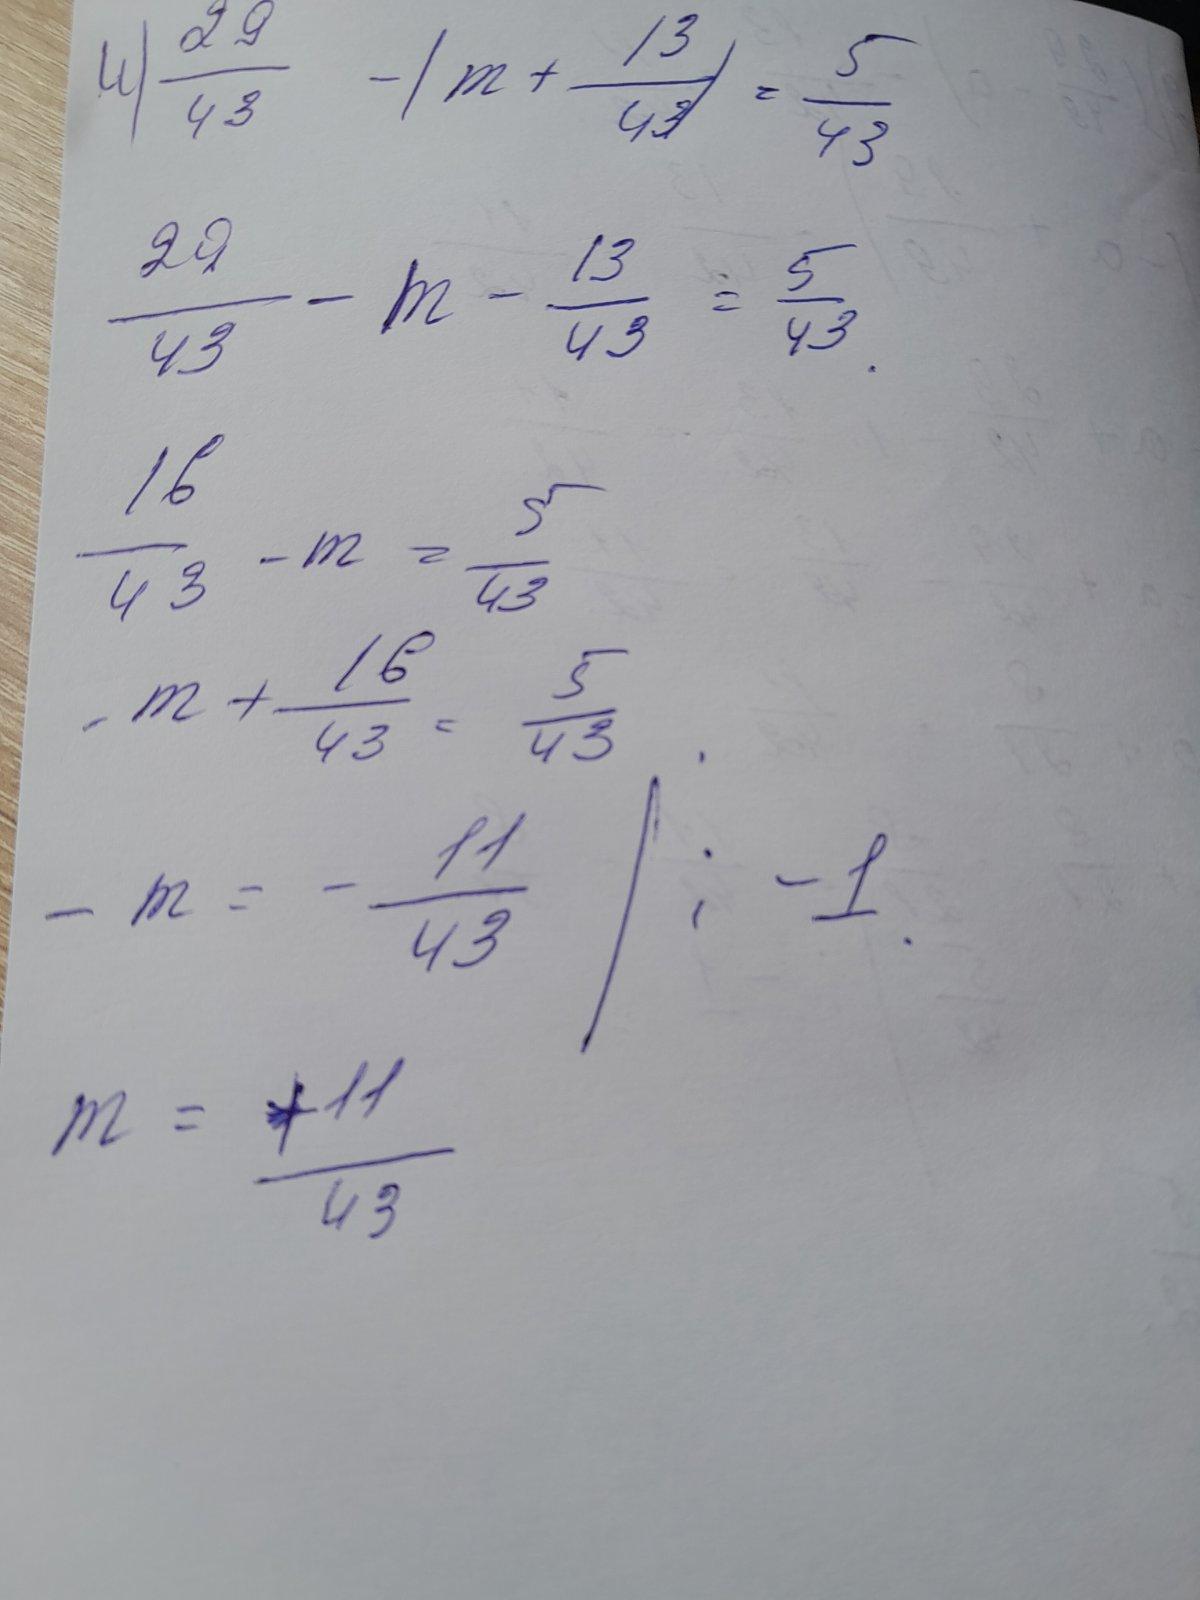 4) 29/43 - (m + 13/43) = 5/43
29/43 - m - 13/43 = 5/43.
16/43 - m = 5/43
- m + 16/43 = 5/43.
- m = - 11/43 | : - 1.
m = +11/43